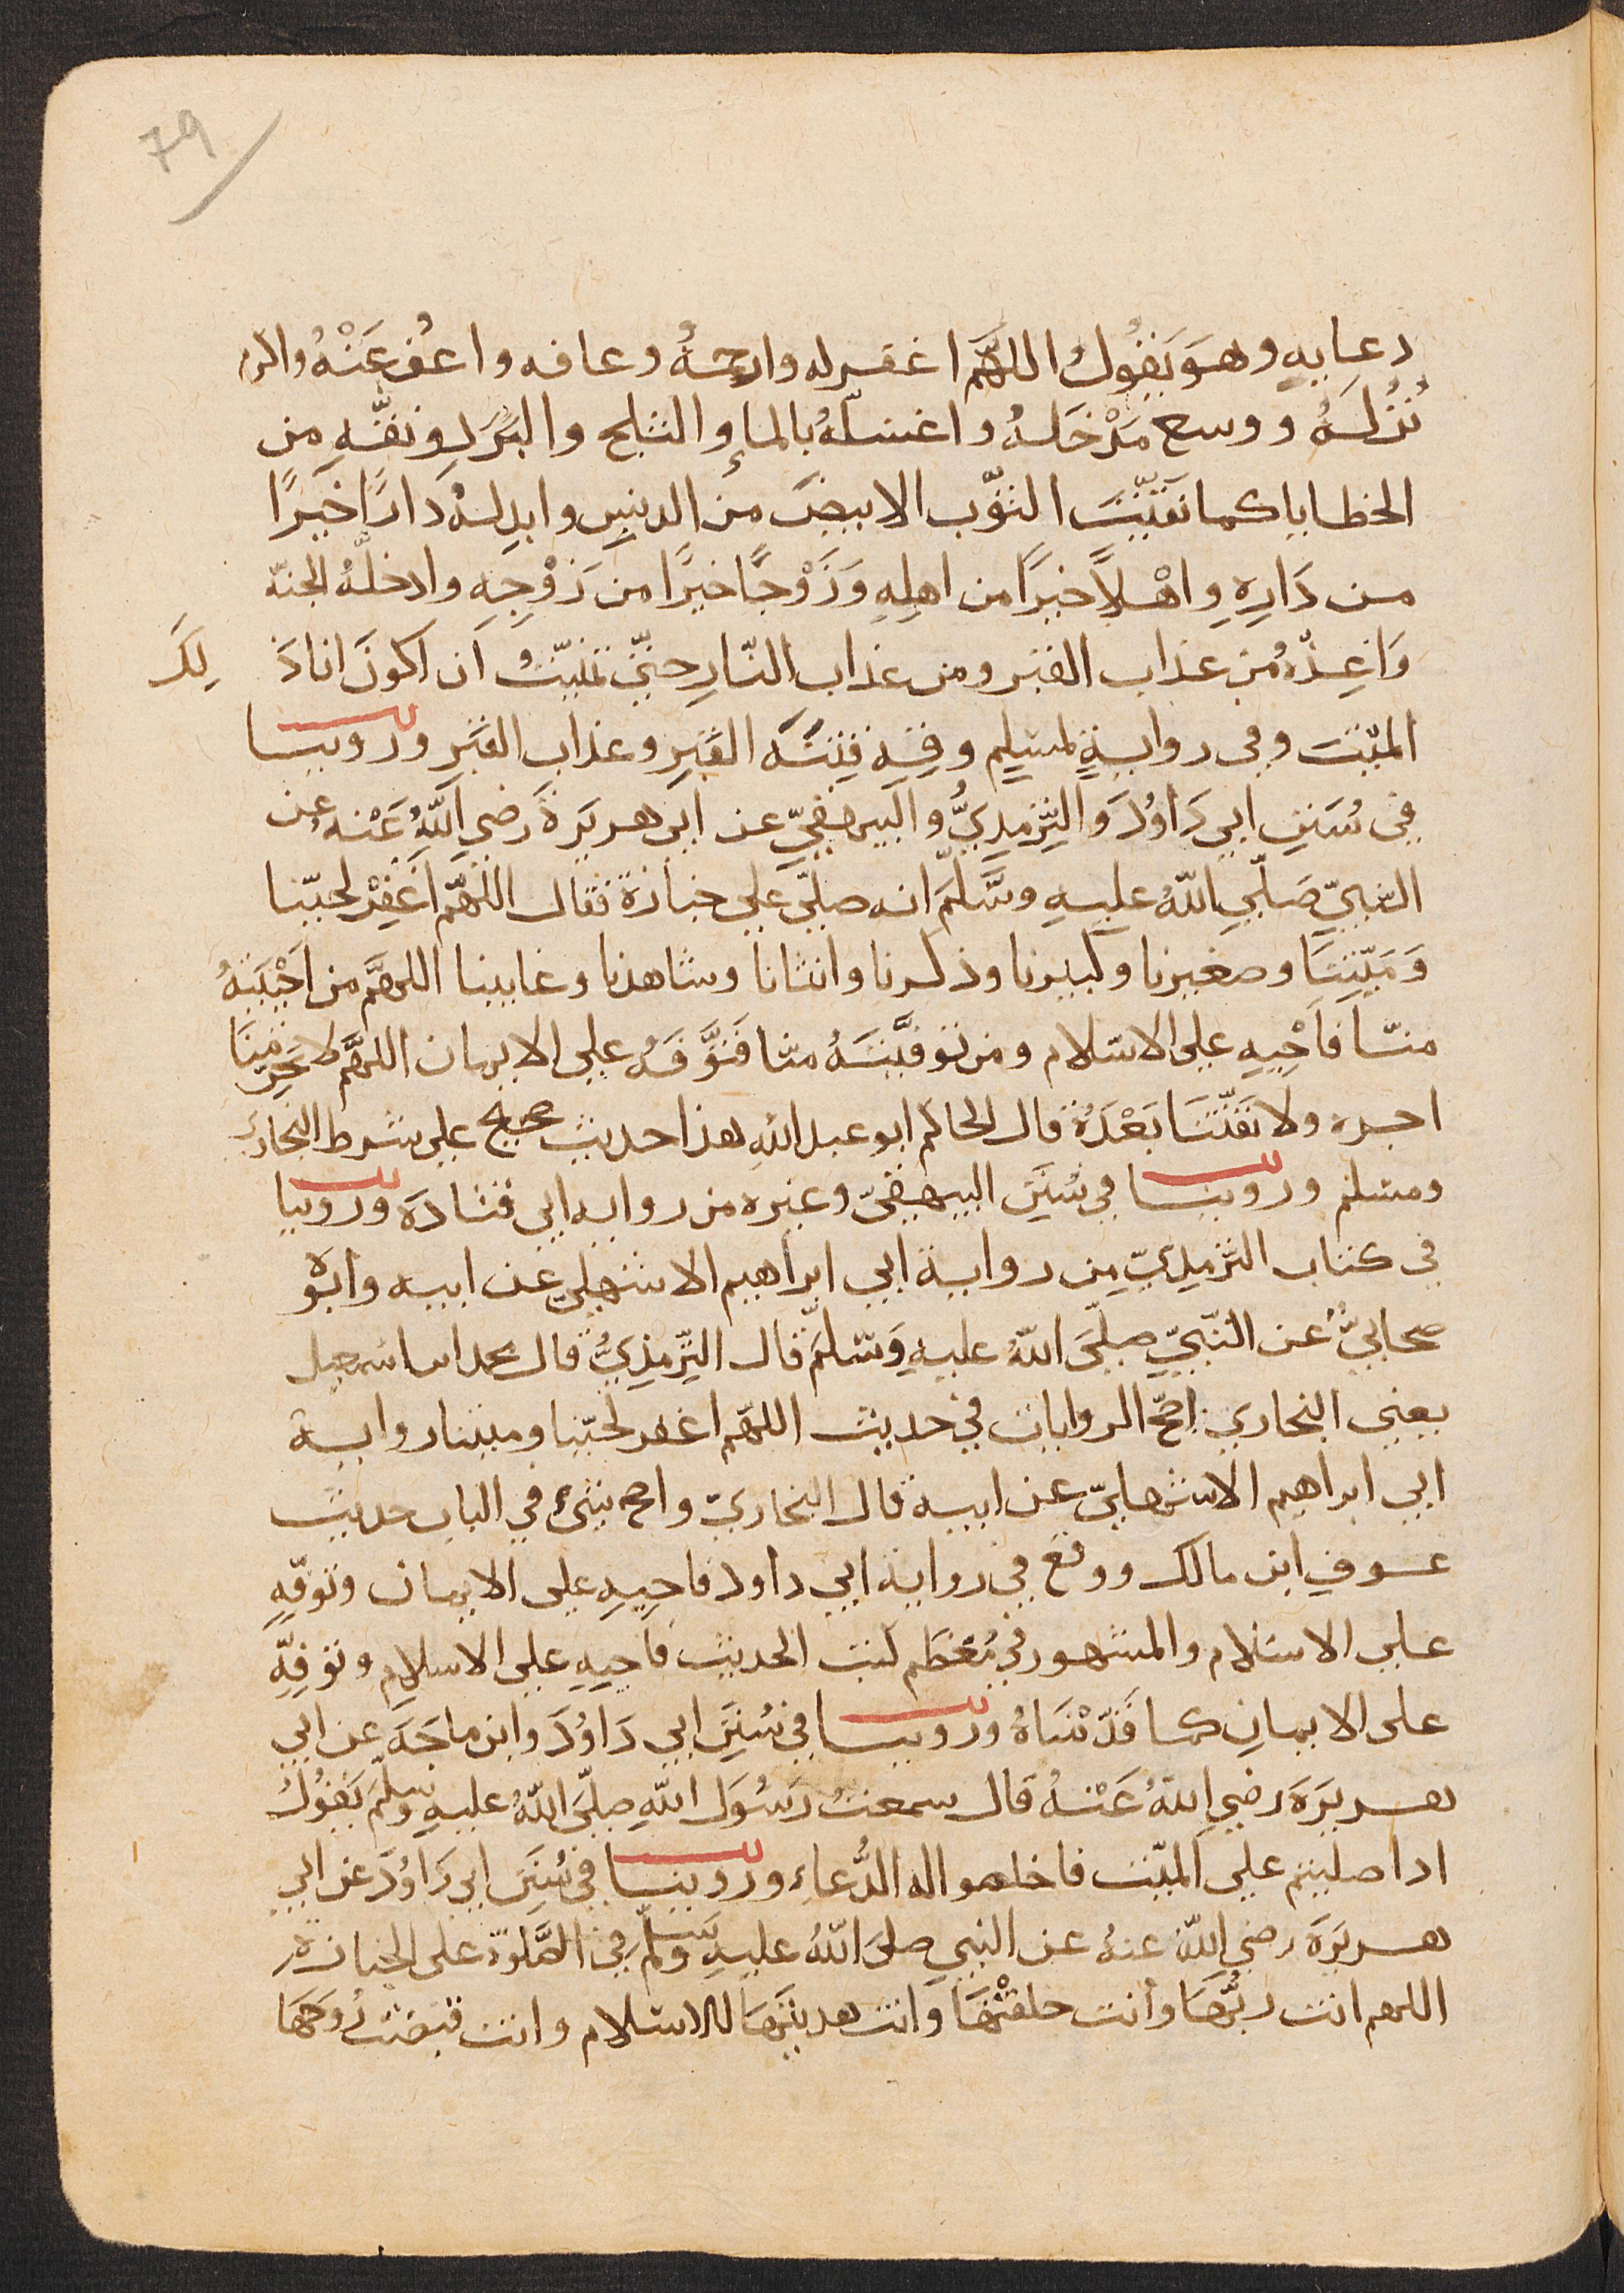 79
دعايه وهو يَقُولُ اللهُمَّ اغفر له وارحمهُ وعافه واعْفُ عَنْهُ واكرم
نُزُلَهُ ووسع مَدْخَلهُ واغسلهُ بالماءِ والثلج والبَرَدِ ونقِّهِ من
الخطايا كما نقّيْتَ الثوْب الابيضَ من الدنسِ وابدِلهُ دَارًا خَيرًا
من دَارِهِ واهْلاً خيرًا من اهلِهِ وَزَوْجًا خيرًا من زَوْجِهِ وادخلْهُ الجنّة
وَاعِذْهُ من عذاب القبر ومن عذاب النّارِ حتّى تمنّيْتُ ان اكونَ انا ذَ لِكَ
الميّتَ وفي روايةٍ لمسْلِم وقِهِ فِتنةَ القبْرِ وعذاب القَبْرِ وروينا
في سُنَنِ ابي دَاوُدَ والتِّرْمِذِيُّ والبيهقيّ عن ابي هريرَةَ رَضي اللهُ عَنْه عن
النبيّ صَلّى اللهُ عليهِ وسَلّمَ انه صلّى على جنازة فقال اللهُمّ اغْفِرْ لحيّنا
وَمَيّتنَا وصغيرنا وكبيرنا وذكرنا وانثانا وشاهدنا وغايبنا اللهمَّ من احْيَيْتهُ
منّا فاحْيِهِ على الاسْلام ومن توفّيْتَهُ منّا فتوَّفهُ على الايمان اللهمَّ لا تحرِمْنَا
اجره ولا تفتنّا بَعْدَهُ قال الحاكم ابو عبد اللهِ هذا حديث صحيح على شرط البخاري
ومسْلم وروينا في سُنَن البيهقيّ وغيره من رواية ابي قتادَة وروينا
في كتاب التّرْمِذِيّ من رواية ابي ابراهيم الاشهلي عن ابيه وابوهُ
صحابيٌّ عن النّبيّ صلّى اللهُ عليهِ وَسَلمَّ قال التِّرمِذِيُّ قال محمد ابن اسْمعيل
يعني البخاري اصحّ الروايات في حديث اللهمّ اغفر لحيّنا وميتنا رواية
ابي ابراهيم الاشهليّ عن ابيه قال البخاريّ واصح شيْءٍ في الباب حديث
عوفِ ابن مالك ووقع في رواية ابي داود فاحيِهِ على الايمان وتوفّهِ
على الاسلام والمشهور في مُعْظَم كتب الحديث فاحيِهِ على الاسلامِ وتوفّهِ
على الايمانِ كما قَدّمْنَاهُ وروينا في سُنَنِ ابي دَاوُدَ وابن ماجَهَ عن ابي
هريرَةَ رضي اللهُ عَنْهُ قال سمعتُ رَسُولَ اللهِ صلّى اللهُ عليهِ وسلّمَ يَقولُ
اذا صليتم على الميّت فاخلصوا له الدُّعاءِ وروينا في سُنَنِ ابي دَاوُدَ عن ابي
هريرَةَ رضي اللهُ عنهُ عن النبي صلى اللهُ عليهِ وسلّم في الصَّلوة على الجنازة
اللهم انت ربُّهَا وأنت خلقْتَهَا وانت هديتَهَا للاسْلام وانت قبضتَ رُوحَهَا